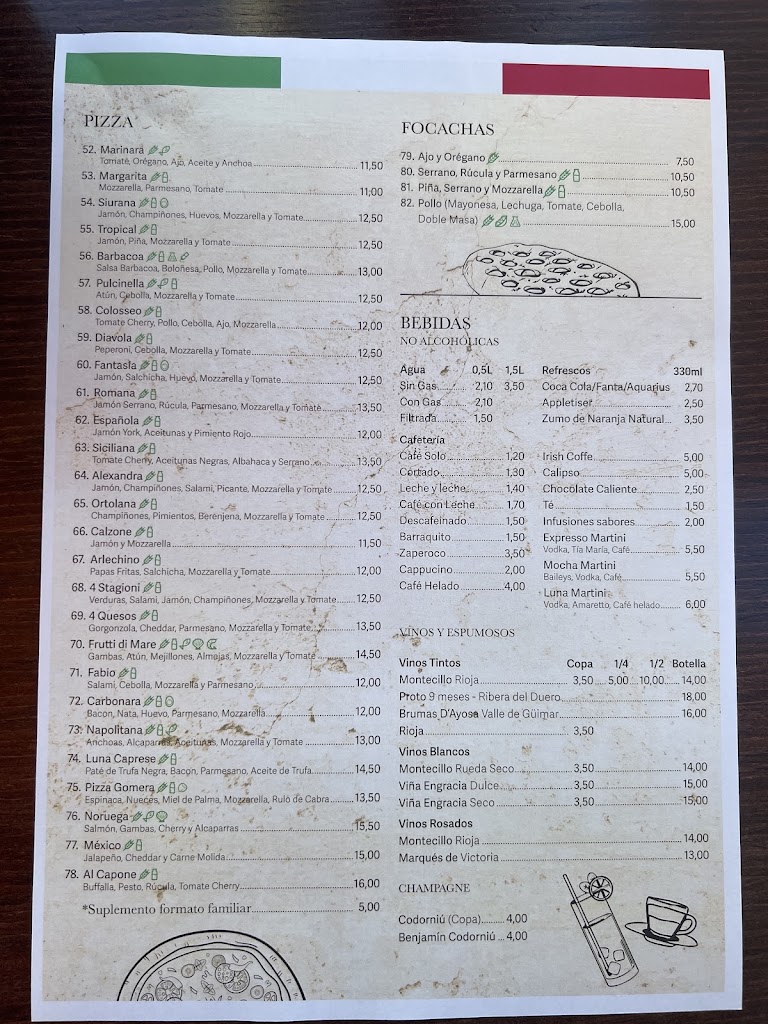 PIZZA
52. Marinara
Tomate, Orégano, Ajo, Aceite y Anchoa 11,50
53. Margarita
Mozzarella, Parmesano, Tomate 11,00
54. Siurana
Jamón, Champiñones, Huevos, Mozzarella y Tomate 12,50
55. Tropical
Jamón, Piña, Mozzarella y Tomate 12,50
56. Barbacoa
Salsa Barbacoa, Boloñesa, Pollo, Mozzarella y Tomate 13,00
57. Pulcinella
Atún, Cebolla, Mozzarella y Tomate 12,50
58. Colosseo
Tomate Cherry, Pollo, Cebolla, Ajo, Mozzarella 12,00
59. Diavola
Peperoni, Cebolla, Mozzarella y Tomate 12,50
60. Fantasia
Jamón, Salchicha, Huevo, Mozzarella y Tomate 12,50
61. Romana
Jamón Serrano, Rúcula, Parmesano, Mozzarella y Tomate 13,50
62. Española
Jamón York, Aceitunas y Pimiento Rojo 12,00
63. Siciliana
Tomate Cherry, Aceitunas Negras, Albahaca y Serrano 13,50
64. Alexandra
Jamón, Champiñones, Salami, Picante, Mozzarella y Tomate 12,50
65. Ortolana
Champiñones, Pimientos, Berenjena, Mozzarella y Tomate 12,50
66. Calzone
Jamón y Mozzarella 11,50
67. Arlechino
Papas Fritas, Salchicha, Mozzarella y Tomate 12,00
68. 4 Stagioni
Verduras, Salami, Jamón, Champiñones, Mozzarella y Tomate 12,50
69. 4 Quesos
Gorgonzola, Cheddar, Parmesano, Mozzarella y Tomate 13,50
70. Frutti di Mare
Gambas, Atún, Mejillones, Almojas, Mozzarella y Tomate 14,50
71. Fabio
Salami, Cebolla, Mozzarella y Parmesano 12,00
72. Carbonara
Bacon, Nata, Huevo, Parmesano, Mozzarella 12,00
73. Napolitana
Anchoas, Alcaparras, Aceitunas, Mozzarella y Tomate 13,00
74. Luna Caprese
Paté de Trufa Negra, Bacon, Parmesano, Aceite de Trufa 14,50
75. Pizza Gomera
Espinaca, Nueces, Miel de Palma, Mozzarella, Rulo de Cabra 13,50
76. Noruega
Salmón, Gambas, Cherry y Alcaparras 15,50
77. México
Jalapeño, Cheddar y Carne Molida 15,00
78. Al Capone
Buffalla, Pesto, Rúcula, Tomate Cherry 16,00
*Suplemento formato familiar 5,00
FOCACHAS
79. Ajo y Orégano 7,50
80. Serrano, Rúcula y Parmesano 10,50
81. Piña, Serrano y Mozzarella 10,50
82. Pollo (Mayonesa, Lechuga, Tomate, Cebolla,
Doble Masa) 15,00
BEBIDAS
NO ALCOHÓLICAS
Agua 0,5L 1,5L
Sin Gas 2,10 3,50
Con Gas 2,10
Filtrada 1,50
Refrescos 330ml
Coca Cola/Fanta/Aquarius 2,70
Appletiser 2,50
Zumo de Naranja Natural 3,50
Cafetería
Café Solo 1,20
Cortado 1,30
Leche y leche 1,40
Café con Leche 1,70
Descafeinado 1,50
Barraquito 1,50
Zaperoco 3,50
Cappucino 2,00
Café Helado 4,00
Irish Coffe 5,00
Calipso 5,00
Chocolate Caliente 2,50
Té 1,50
Infusiones sabores 2,00
Expresso Martini
Vodka, Tía María, Café 5,50
Mocha Martini
Baileys, Vodka, Café 5,50
Luna Martini
Vodka, Amaretto, Café helado 6,00
VINOS Y ESPUMOSOS
Vinos Tintos Copa 1/4 1/2 Botella
Montecillo Rioja 3,50 5,00 10,00 14,00
Proto 9 meses - Ribera del Duero 18,00
Brumas D'Ayosa Valle de Güimar 16,00
Rioja 3,50
Vinos Blancos
Montecillo Rueda Seco 3,50 14,00
Viña Engracia Dulce 3,50 15,00
Viña Engracia Seco 3,50 15,00
Vinos Rosados
Montecillo Rioja 14,00
Marqués de Victoria 13,00
CHAMPAGNE
Codorniú (Copa) 4,00
Benjamín Codorniú 4,00